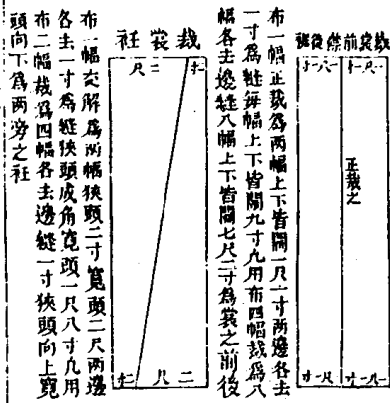 裁裳前襟後裾
一尺一寸
一尺一寸
正裁之
一尺一寸
一尺一寸
布一幅正裁爲兩幅上下皆闊一尺一寸兩邊各去
一寸爲縫每幅上下皆闊九寸凡用布四幅裁爲八
幅各去邊縫八幅上下皆闊七尺二寸爲裳之前後
裁裳衽
二寸
二尺
二尺
二寸
布一幅交解爲兩幅狹頭二寸寬頭二尺兩邊
各去一寸爲縫狹頭成角寬頭一尺八寸凡用
布二幅裁爲四幅各去邊縫一寸狹頭向上寬
頭向下爲兩旁之衽